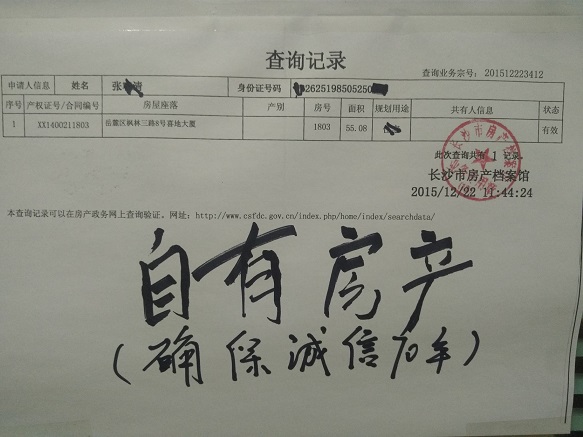 查询记录
查询业务宗号: 201512223412
申请人信息 姓名 张 清 身份证号码 2625198505250
序号 产权证号/合同编号 房屋座落 产别 房号 面积 规划用途 共有人信息 状态
1 XX1400211803 岳麓区枫林三路8号喜地大厦 1803 55.08 有效
此次查询共有 1 记录。
长沙市房产档案馆
2015/12/22 11:44:24
本查询记录可以在房产政务网上查询验证。网址: http://www.csfdc.gov.cn/index.php/home/index/searchdata/
自有房产
(确保诚信70年)